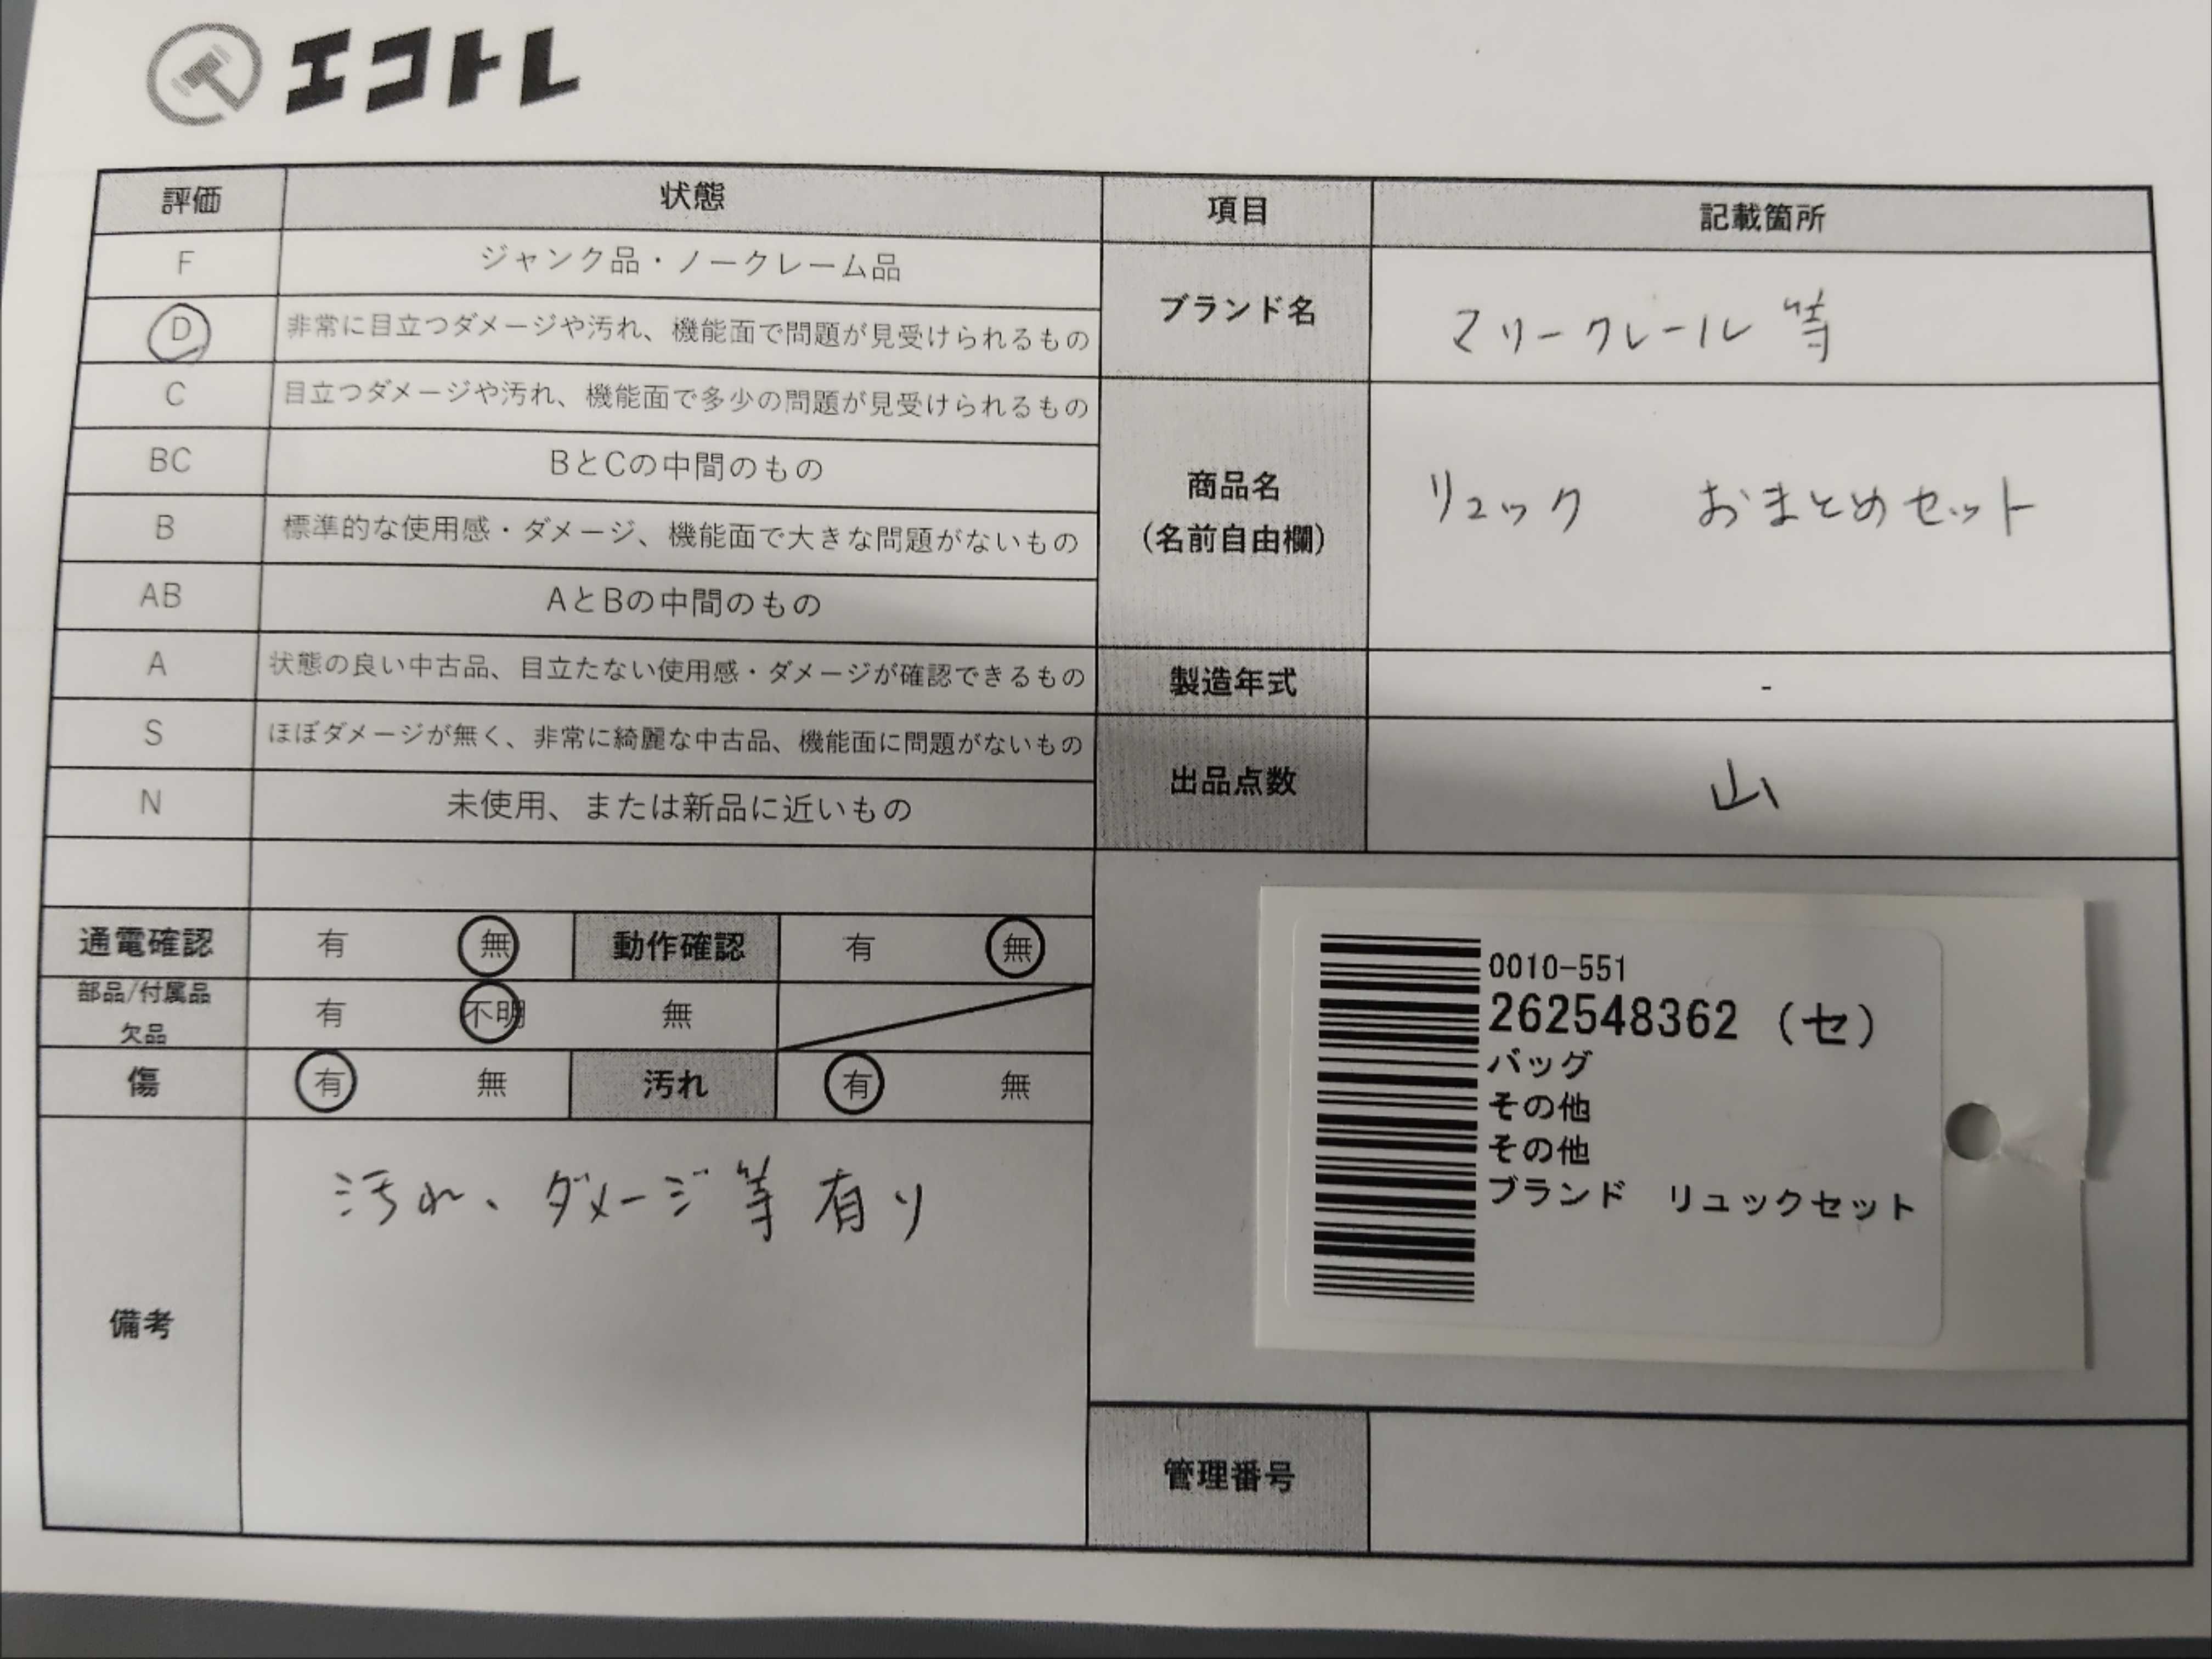 エコトレ
評価 状態 項目 記載箇所
F ジャンク品・ノークレーム品
D 非常に目立つダメージや汚れ、機能面で問題が見受けられるもの
ブランド名 マリークレール 等
C 目立つダメージや汚れ、機能面で多少の問題が見受けられるもの
BC BとCの中間のもの
商品名
(名前自由欄)
リュック おまとめセット
B 標準的な使用感・ダメージ、機能面で大きな問題がないもの
AB AとBの中間のもの
A 状態の良い中古品、目立たない使用感・ダメージが確認できるもの
製造年式 -
S ほぼダメージが無く、非常に綺麗な中古品、機能面に問題がないもの
出品点数 山
N 未使用、または新品に近いもの
通電確認 有 無 動作確認 有 無
部品/付属品
欠品
有 不明 無
傷 有 無 汚れ 有 無
備考
汚れ、ダメージ等有り
0010-551
262548362 (セ)
バッグ
その他
その他
ブランド リュックセット
管理番号